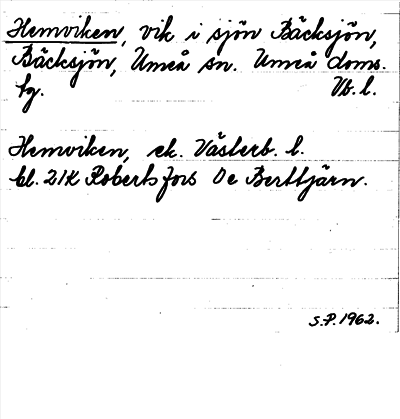 Hemviken, vik i sjön Bäcksjön,
Bäcksjön, Umeå sn. Umeå doms.
fg. Vb. l.
Hemviken, ek. Västerb. l.
bl. 21K Robertsfors 0e Berttjärn.
S.P. 1962.